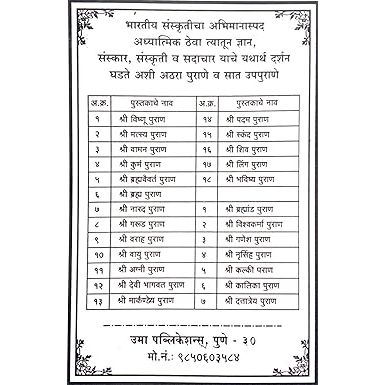 भारतीय संस्कृतीचा अभिमानास्पद
अध्यात्मिक ठेवा त्यातून ज्ञान,
संस्कार, संस्कृती व सदाचार याचे यथार्थ दर्शन
घडते अशी अठरा पुराणे व सात उपपुराणे
अ.क्र. पुस्तकाचे नाव अ.क्र. पुस्तकाचे नाव
१ श्री विष्णू पुराण १४ श्री पदम पुराण
२ श्री मत्स्य पुराण १५ श्री स्कंद पुराण
३ श्री वामन पुराण १६ श्री शिव पुराण
४ श्री कुर्म पुराण १७ श्री लिंग पुराण
५ श्री ब्रह्मवैवर्त पुराण १८ श्री भविष्य पुराण
६ श्री ब्रह्म पुराण
७ श्री नारद पुराण १ श्री ब्रह्मांड पुराण
८ श्री गरूड पुराण २ श्री विश्वकर्मा पुराण
९ श्री वराह पुराण ३ श्री गणेश पुराण
१० श्री वायु पुराण ४ श्री नृसिंह पुराण
११ श्री अग्नी पुराण ५ श्री कल्की पुराण
१२ श्री देवी भागवत पुराण ६ श्री कालिका पुराण
१३ श्री मार्कण्डेय पुराण ७ श्री दत्तात्रेय पुराण
उमा पब्लिकेशन्स्, पुणे - ३०
मो.नं.: ९८५०६०३५८४